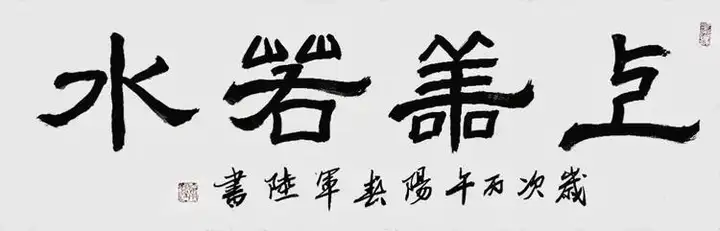 上善若水
歲次丙午陽春軍陸書